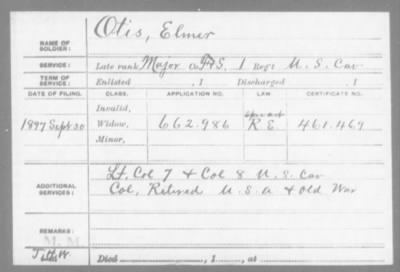 NAME OF SOLDIER: Otis, Elmer
SERVICE: Late rank Major Co. F&S, 1 Reg't U. S. Cav
TERM OF SERVICE: Enlisted , 1 Discharged , 1
DATE OF FILING. CLASS. APPLICATION NO. LAW CERTIFICATE NO.
Invalid,
1897 Sept 30 Widow, 662.986 R. E. 461.469
Minor,
ADDITIONAL SERVICES: Lt. Col 7 & Col 8 U. S. Cav
Col. Retired U. S. A & Old War
REMARKS:
Died , 1 , at